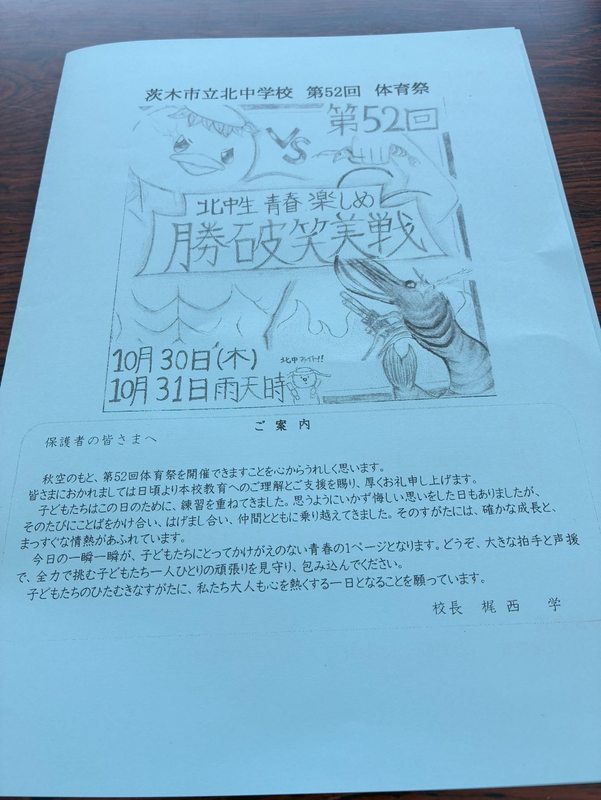 茨木市立北中学校 第52回 体育祭
第52回
VS
北中生 青春 楽しめ
勝破笑美戦
10月30日(木)
北中ファイト!!
10月31日雨天時
ご案内
保護者の皆さまへ
秋空のもと、第52回体育祭を開催できますことを心からうれしく思います。
皆さまにおかれましては日頃より本校教育へのご理解とご支援を賜り、厚くお礼申し上げます。
子どもたちはこの日のために、練習を重ねてきました。思うようにいかず悔しい思いをした日もありましたが、
そのたびにことばをかけ合い、はげまし合い、仲間とともに乗り越えてきました。そのすがたには、確かな成長と、
まっすぐな情熱があふれています。
今日の一瞬一瞬が、子どもたちにとってかけがえのない青春の1ページとなります。どうぞ、大きな拍手と声援
で、全力で挑む子どもたち一人ひとりの頑張りを見守り、包み込んでください。
子どもたちのひたむきなすがたに、私たち大人も心を熱くする一日となることを願っています。
校長 梶西 学